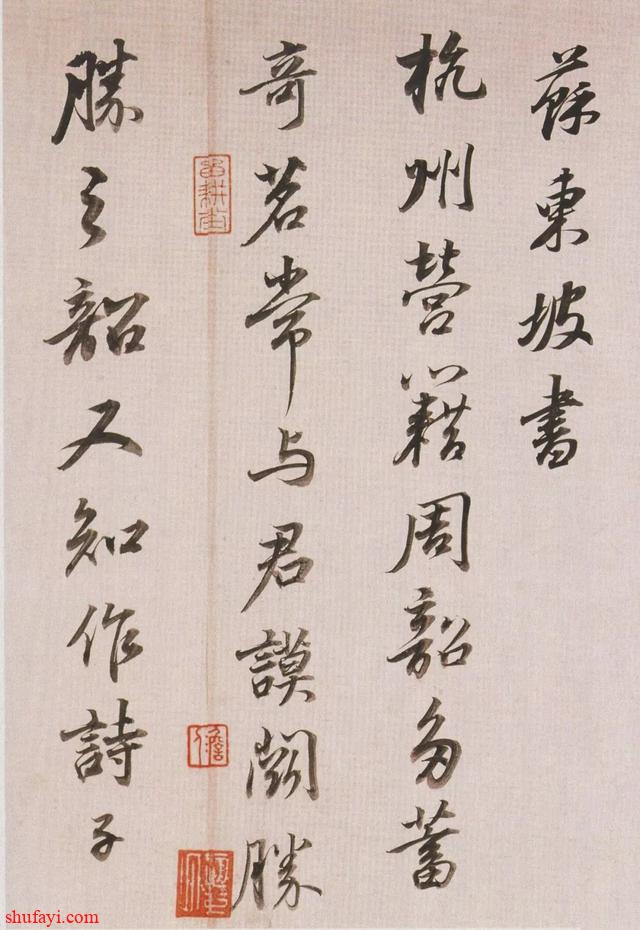 蘇東坡書
杭州營籍周韶多蓄
奇茗常与君謨鬭勝
勝之韶又知作詩子
shufayi.com